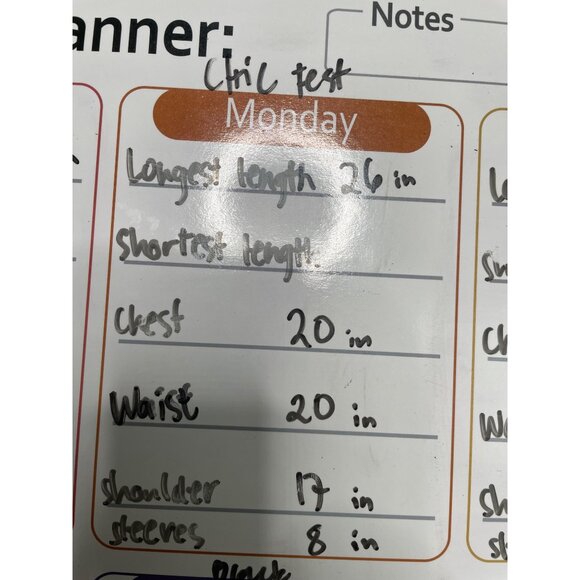 anner:
Notes
test
Monday
Longest length 26 in
shortest length
Chest 20 in
Waist 20 in
shoulder 17 in
sleeves 8 in